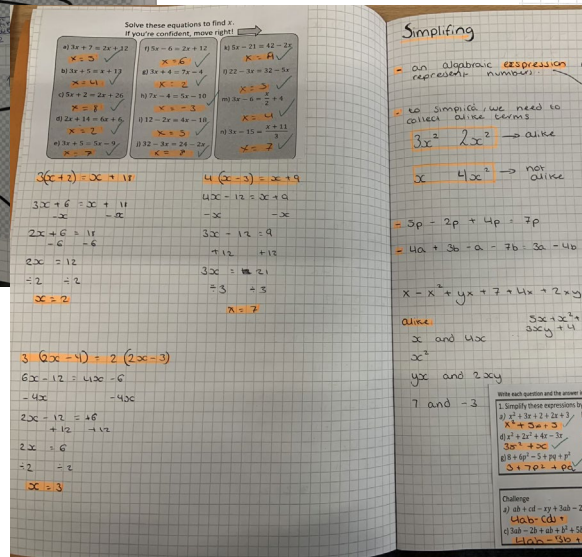 Solve these equations to find x.
If you're confident, move right!
a) 3x + 7 = 2x + 12
x = 5
b) 3x + 5 = x + 13
x = 4
c) 5x + 2 = 2x + 26
x = 8
d) 2x + 14 = 6x + 6
x = 2
e) 3x + 5 = 5x - 9
x = 7
f) 5x - 6 = 2x + 12
x = 6
g) 3x + 4 = 7x - 4
x = 2
h) 7x - 4 = 5x - 10
x = -3
i) 12 - 2x = 4x - 18
x = 5
j) 32 - 3x = 24 - 2x
k) 5x - 21 = 42 - 2x
l) 22 - 3x = 32 - 5x
m) 3x - 6 = x/2 + 4
x = 4
n) 3x - 15 = (x + 11)/3
x = 7
3(x+2) = x + 18
3x + 6 = x + 18
-x -x
2x + 6 = 18
-6 -6
2x = 12
÷2 ÷2
x = 2
4(x-3) = x+9
4x - 12 = x + 9
-x -x
3x - 12 = 9
+12 +12
3x = 21
÷3 ÷3
x = 7
3(2x-4) = 2(2x-3)
6x - 12 = 4x - 6
-4x -4x
2x - 12 = +6
+12 +12
2x = 6
÷2 ÷2
x = 3
Simplifing
- an algabraic expression
represent numbers.
- to simplify, we need to
collect alike terms
3x² 2x² → alike
x 4x² → not
alike
- 5p - 2p + 4p = 7p
- 4a + 3b - a - 7b = 3a - 4b
x - x² + yx + 7 + 4x + 2xy
alike:
x and 4x
x²
yx and 2xy
7 and -3
5x + x² +
3xy + 4
Write each question and the answer
1. Simplify these expressions by
a) x² + 3x + 2 + 2x + 3
x² + 5x + 5
d) x² + 2x² + 4x - 3x
3x² + x
g) 8 + 6p² - 5 + pq + p²
3 + 7p² + pq
Challenge
a) ab + cd - xy + 3ab - 2
4ab - cd
c) 3ab - 2b + ab + b² + 5b
4ab - 3b +